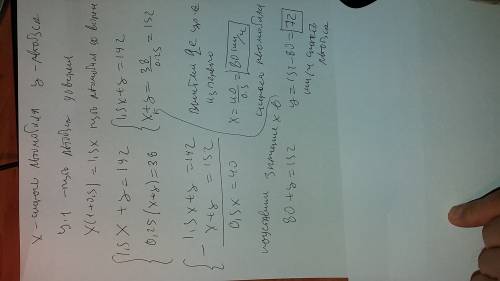 x - скорость автомобиля y - автобуса
y·1 - путь автобуса до встречи
x(1+0,5) = 1,5x путь автомобиля до встречи
{ 1,5x + y = 192 { 1,5x + y = 192
0,25(x+y) = 38 x + y = 38/0,25 = 152
{ - 1,5x + y = 192
x + y = 152
0,5x = 40
x = 40/0,5 = 80 км/ч
скорость автомобиля
подставим значение x в
80 + y = 152
y = 152 - 80 = 72
км/ч скорость
автобуса